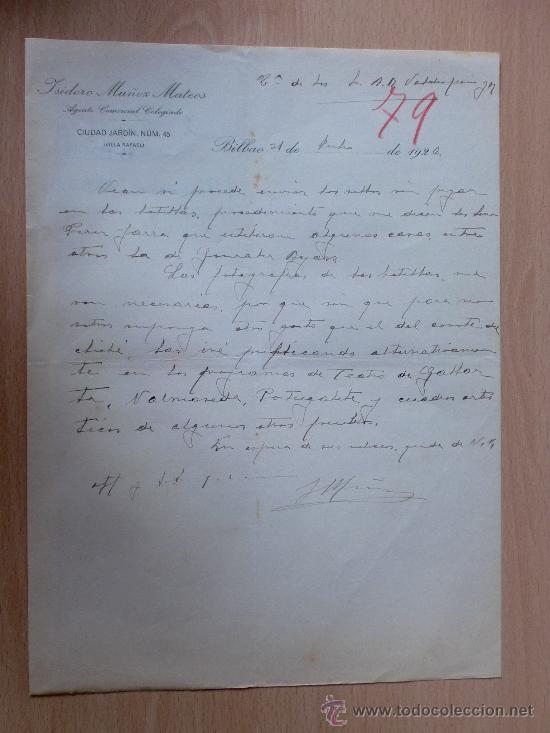 Isidoro Muñoz Mateos
Agente Comercial Colegiado
CIUDAD JARDÍN, NÚM. 45
(VILLA RAFAEL)
de los S. A. R.
79
Bilbao 21 de de 1926
Vean si procede enviar los sellos sin pegar
en las botellas, procedimiento que me dicen los
que utilizan algunas casas, entre
otras la de Gonzalez Byass.
Las fotografias de las botellas, me
son necesarias, por que sin que para no-
sotros suponga otro gasto que el del coste de
cliché, las iré publicando alternativamen-
te en los programas de Teatro de Gallar-
ta, Valmaseda, Portugalete y cuadros artis-
ticos de algunos otros pueblos.
En espera de sus noticias, queda de V.
todocoleccion
www.todocoleccion.net